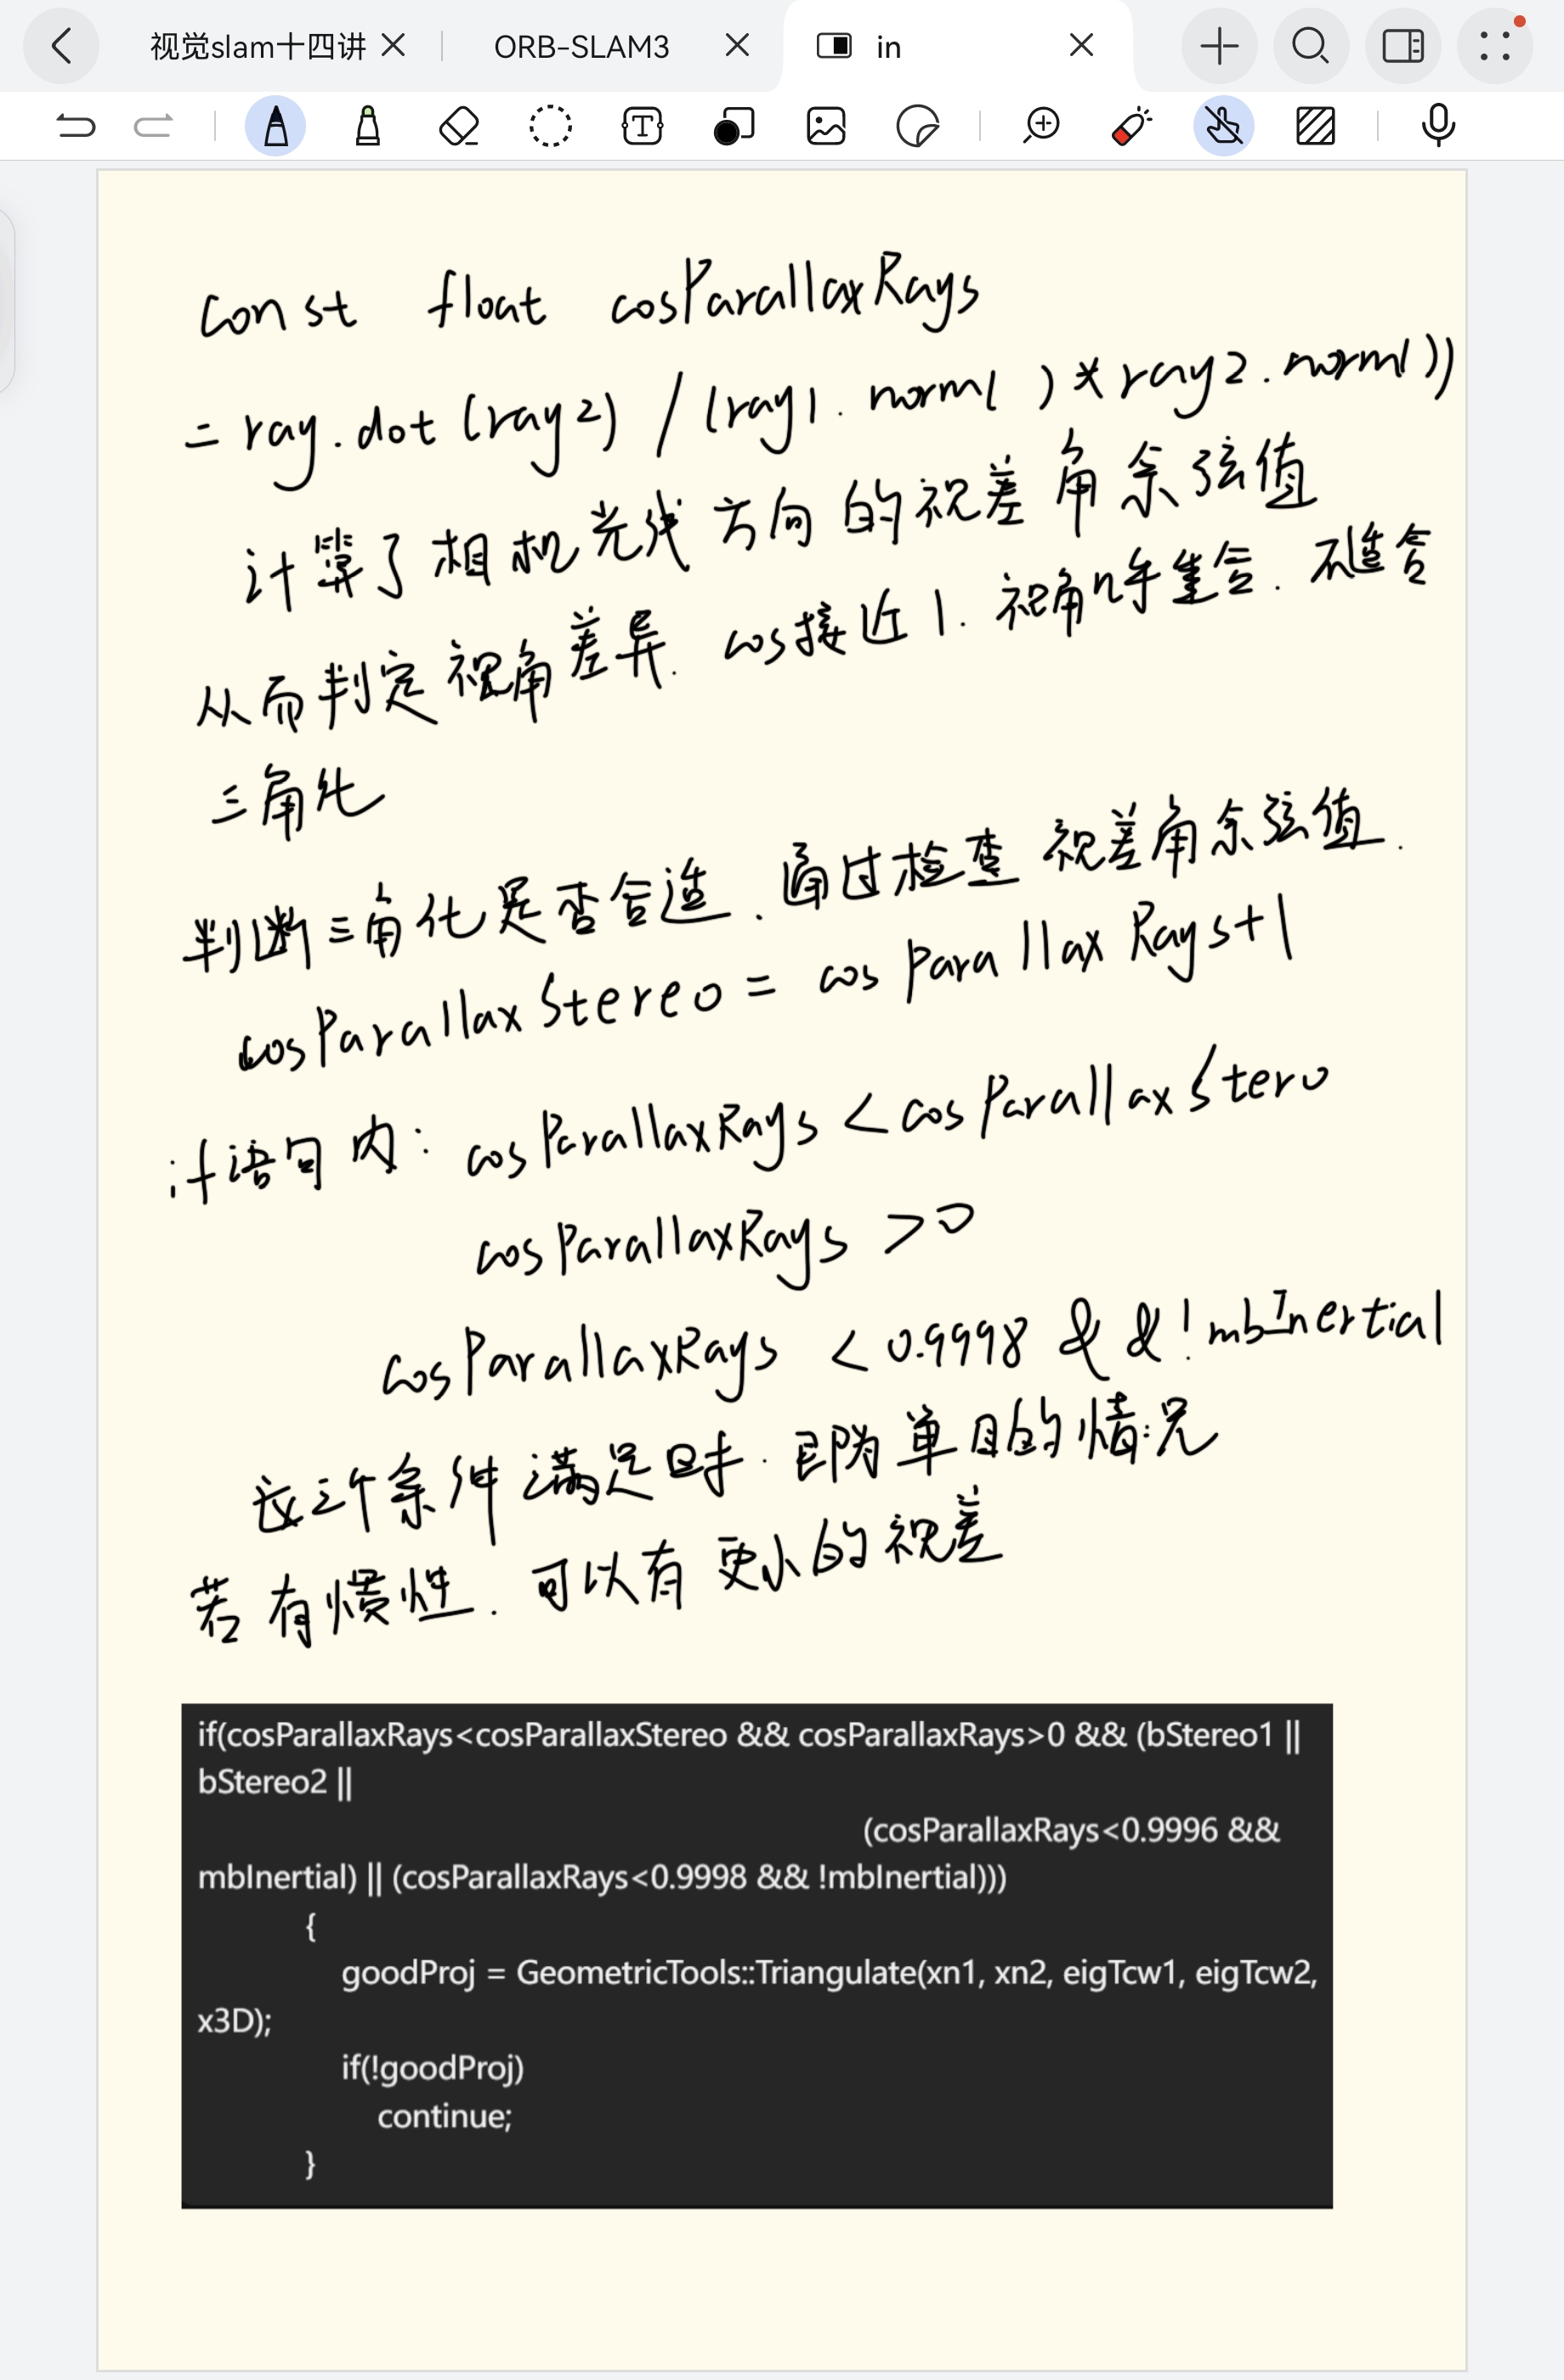 视觉slam十四讲 ORB-SLAM3 in
const float cosParallaxRays
= ray.dot(ray2) / (ray1.norm( ) * ray2.norm())
计算了相机光线方向的视差角余弦值
从而判定视角差异. cos接近1. 视角几乎重合. 不适合
三角化
判断三角化是否合适. 通过检查视差角余弦值.
cosParallaxStereo = cosParallaxRays+1
if语句内: cosParallaxRays < cosParallaxStero
cosParallaxRays >0
cosParallaxRays < 0.9998 && !mbInertial
这个条件满足时. 即为单目的情况
若有惯性. 可以有更小的视差
if(cosParallaxRays<cosParallaxStereo && cosParallaxRays>0 && (bStereo1 ||
bStereo2 ||
(cosParallaxRays<0.9996 &&
mbInertial) || (cosParallaxRays<0.9998 && !mbInertial)))
{
goodProj = GeometricTools::Triangulate(xn1, xn2, eigTcw1, eigTcw2,
x3D);
if(!goodProj)
continue;
}